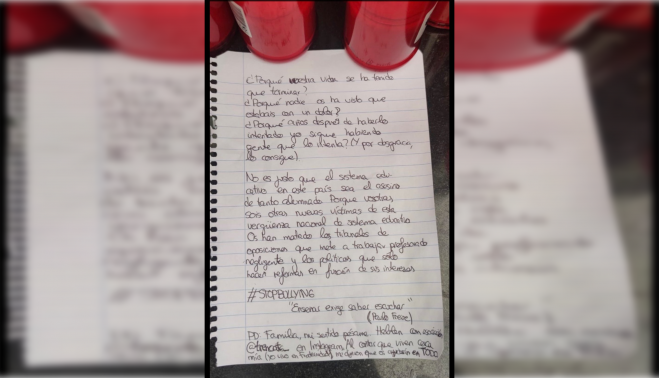 ¿Porqué vuestra vida se ha tenido
que terminar?
¿Porqué nadie os ha visto que
estabais con un dolor?
¿Porqué años después de haberlo
intentado yo sigue habiendo
gente que lo intenta? (Y por desgracia,
lo consigue)
No es justo que el sistema edu-
cativo en este país sea el asesino
de tanto alumnado. Porque vosotras,
sois otras nuevas víctimas de esta
vergüenza nacional de sistema educativo
Os han matado los tribunales de
oposiciones que mete a trabajar profesorado
negligente y los políticos que solo
hacen reformas en función de sus intereses
#STOPBULLYING
"Enseñar exige saber escuchar"
(Paulo Freire)
PD: Familia, mi sentido pésame. Hablan con
en Instagram. Al que viven cerca
mía (yo vivo en), no que os en TODO